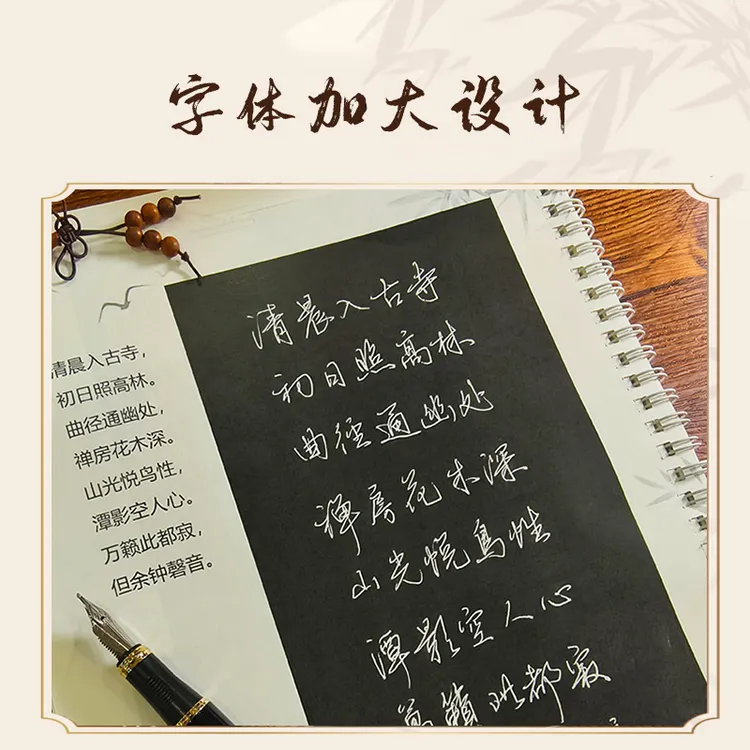 字体加大设计
清晨入古寺，
初日照高林。
曲径通幽处，
禅房花木深。
山光悦鸟性，
潭影空人心。
万籁此都寂，
但余钟磬音。
清晨入古寺
初日照高林
曲径通幽处
禅房花木深
山光悦鸟性
潭影空人心
万籁此都寂